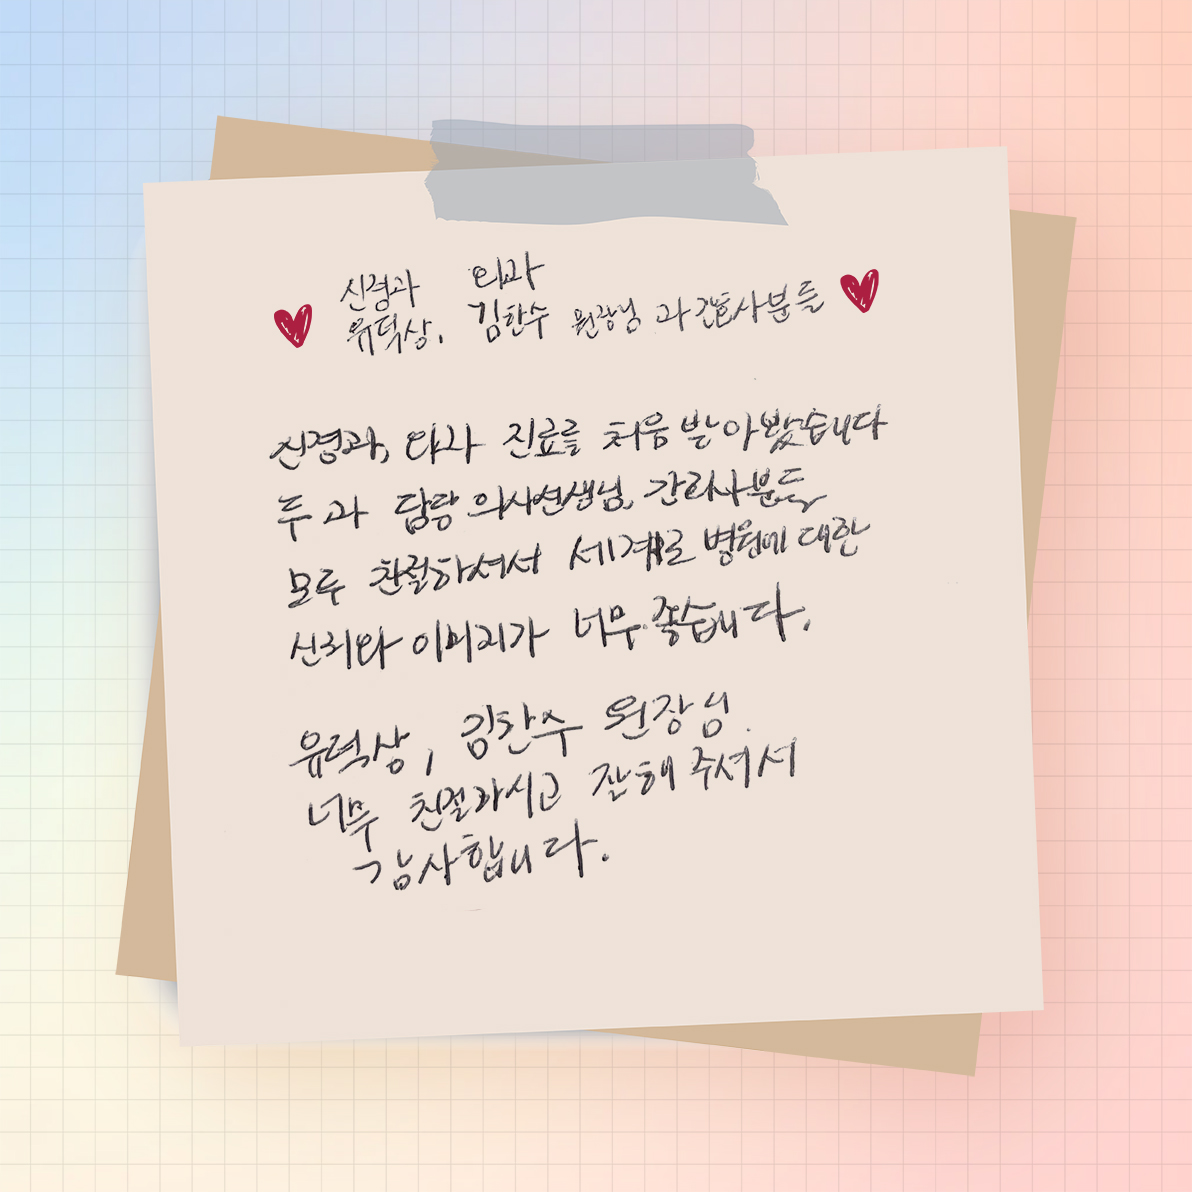 신경과 외과
유덕상, 김한수 원장님과 간호사분들
신경과, 외과 진료를 처음 받아봤습니다
두 과 담당 의사선생님, 간호사분들
모두 친절하셔서 세계로병원에 대한
신뢰와 이미지가 너무 좋습니다.
유덕상, 김한수 원장님
너무 친절하시고 잘해 주셔서
감사합니다.